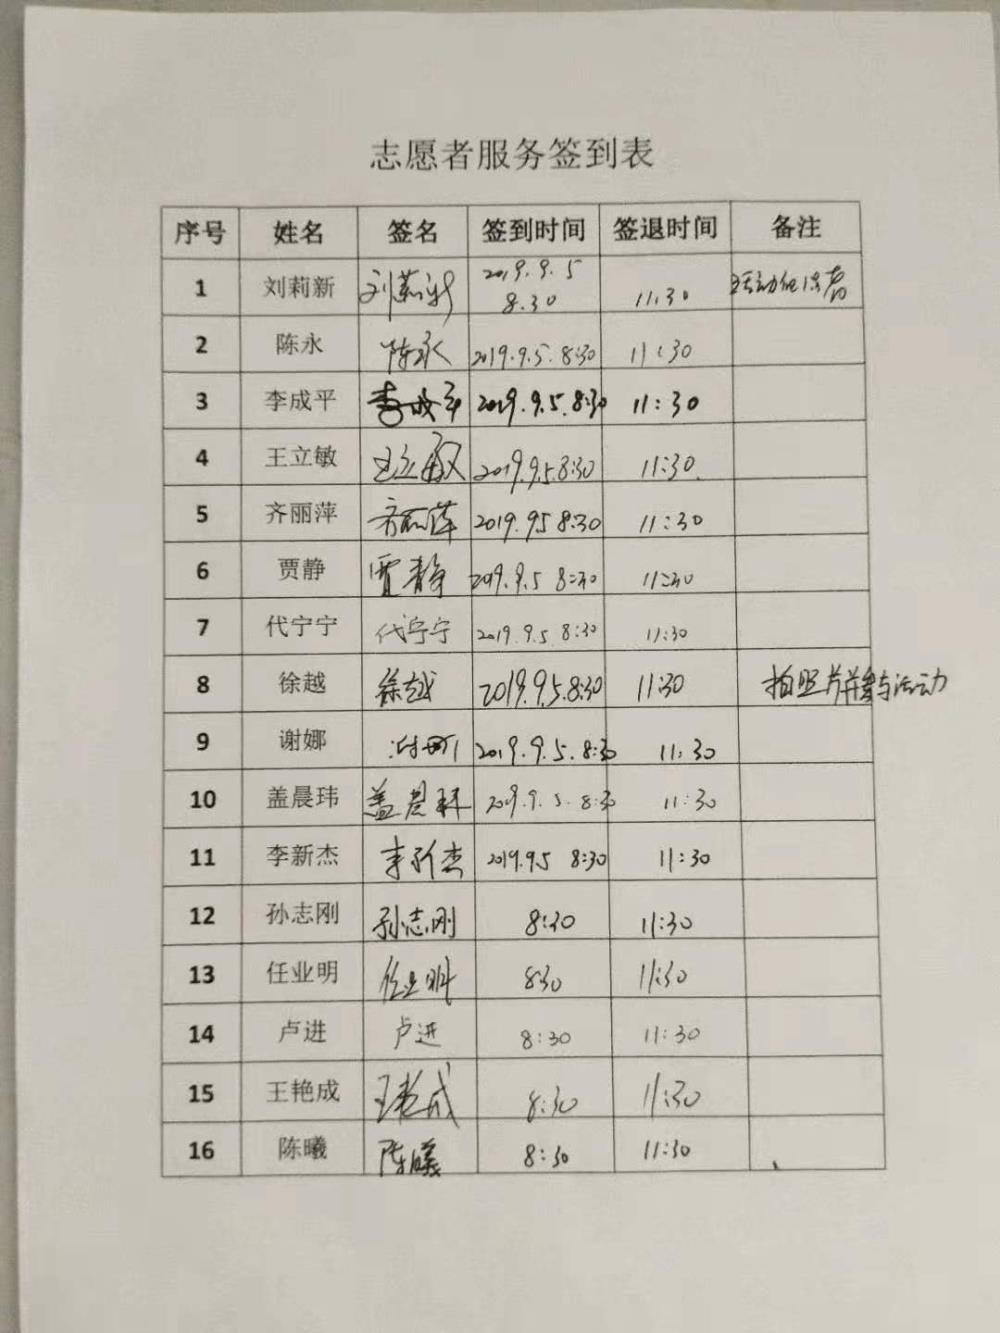 志愿者服务签到表
序号 姓名 签名 签到时间 签退时间 备注
1 刘莉新 刘莉新 2019.9.5 8.30 11.30
2 陈永 陈永 2019.9.5. 8:30 11:30
3 李成平 李成平 2019.9.5.8:30 11:30
4 王立敏 王立敏 2019.9.5.8:30 11:30.
5 齐丽萍 齐丽萍 2019.95 8:30 11:30
6 贾静 贾静 2019.9.5 8:30 11:30
7 代宁宁 代宁宁 2019.9.5 8:30 11:30
8 徐越 徐越 2019.9.5.8:30 11:30 拍照并参与活动
9 谢娜 谢娜 2019.9.5.8:30 11:30
10 盖晨玮 盖晨玮 2019.9.5.8:30 11:30
11 李新杰 李新杰 2019.9.5 8:30 11:30
12 孙志刚 孙志刚 8:30 11:30
13 任业明 任业明 830 11:30
14 卢进 卢进 8:30 11:30
15 王艳成 王艳成 8:30 11:30
16 陈曦 陈曦 8:30 11:30